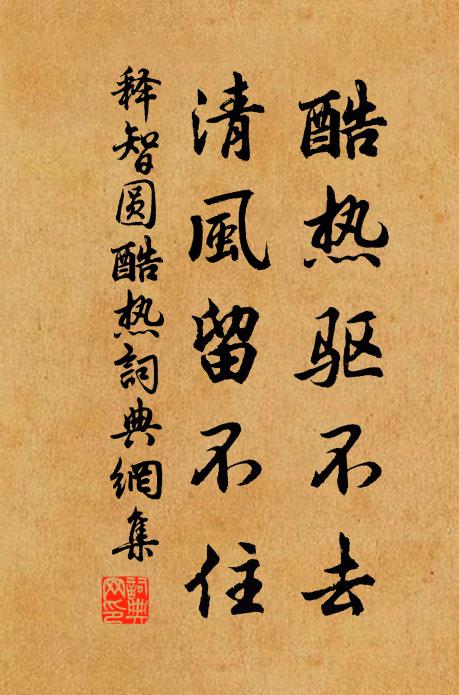 酷热驱不去
清風留不住
释智圆酷热詞典網集
詞典网印